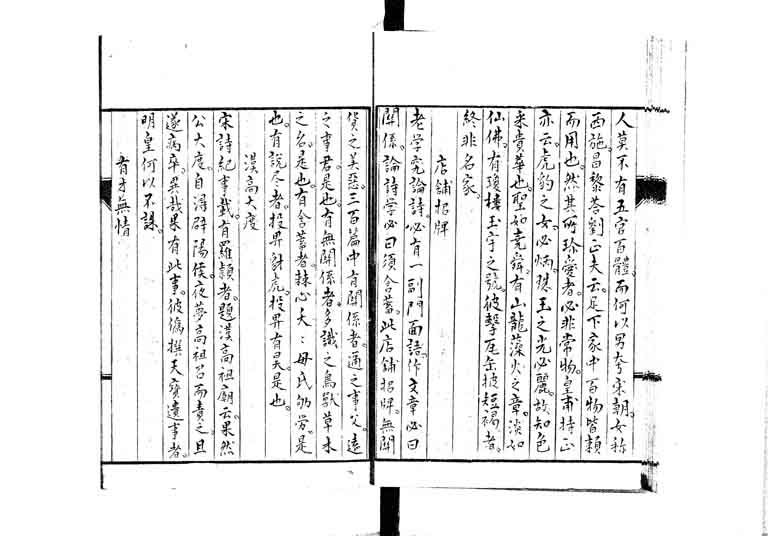 人莫不有五官百體。而何以男夸宋朝。女稱
西施。昌黎荅劉正夫云。足下家中百物皆賴
而用也。然其所珍愛者。必非常物。皇甫持正
亦云。虎豹之文必炳。珠玉之光必麗。故知色
采貴華也。聖如堯舜。有山龍藻火之章。淡如
仙佛。有瓊樓玉宇之號。彼擊瓦缶披短褐者。
終非名家。
店鋪招牌
老学究論詩。必有一副門面語。作文章。必曰
関係。論詩学。必曰須含蓄。此店鋪招牌。無関
貨之美惡。三百篇中有関係者。邇之事父。遠
之事君是也。有無関係者。多識之鳥獸草木
之名。是也。有含蓄者。棘心夭夭。母氏劬勞。是
也。有說尽者。投畀豺虎。投畀有昊。是也。
漢高大度
宋詩紀事載有羅穎者。題漢高祖廟云。果然
公大度。自淂辟陽侯。夜夢高祖召而責之。旦
遂病卒。異哉。果有此事。彼偽撰天寶遺事者。
明皇何以不誅。
有才無情